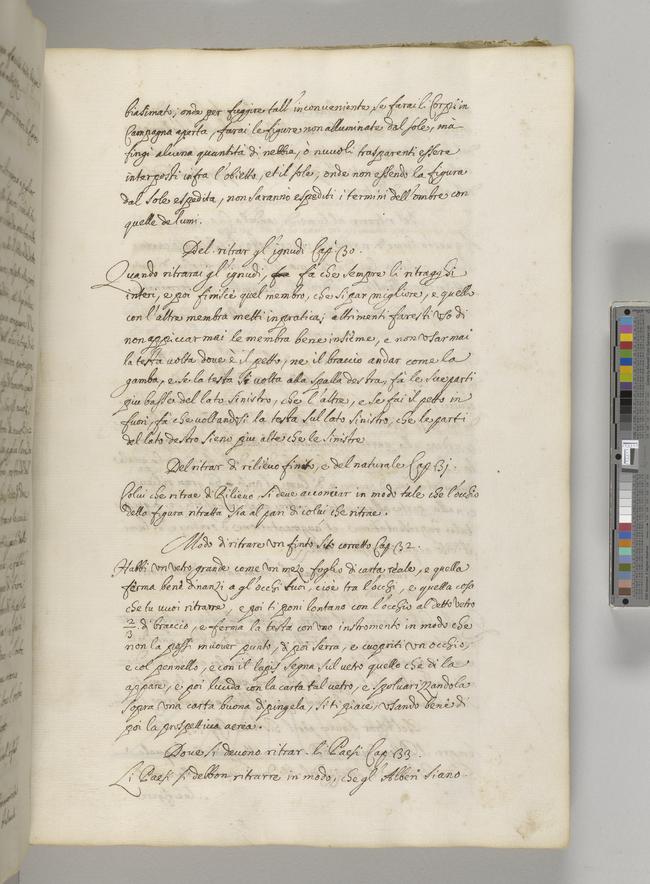 biasimato; onde per fuggire tall' inconveniente, se farai li Corpi in
Campagna aperta, farai le figure non alluminate dal sole, mà
fingi alcuna quantità di nebbia, ò nuvoli trasparenti essere
interposti infra l'obietto, et il sole, onde non essendo la figura
dal sole espedita, non saranno espediti i termini dell'ombre con
quelle de lumi.
Del ritrar gl'ignudi Cap. 30.
Quando ritrarai gl'ignudi, fa che sempre li ritragghi
interi, e poi finisci quel membro, che si par migliore, e quello
con l'altre membra metti in pratica; altrimenti faresti uso di
non appiccar mai le membra bene insieme, e non usar mai
la testa volta dove è il petto, ne il braccio andar come la
gamba, e se la testa si volta alla spalla destra, fà le sue parti
più basse del lato sinistro, che l'altre, e se fai il petto in
fuori, fà che voltandosi la testa sul lato sinistro, che le parti
del lato destro sieno più alte che le sinistre
Del ritrar di rilievo finto, e del naturale Cap. 31.
Colui che ritrae di Rilievo, si deve acconciar in modo tale che l'occhio
della figura ritratta sia al pari di colui che ritrae.
Modo di ritrare un finto sito corretto Cap. 32.
Habbi un vetro grande come un mezo foglio di carta reale, e quella
ferma bene dinanzi a gl'occhi tuoi, cioè tra l'occhi, e quella cosa
che tu vuoi ritrarre, e poi ti poni lontano con l'occhio al detto vetro
2/3 di braccio, e ferma la testa con uno instromento in modo che
non la possi muover punto, di poi serra, e cuopriti un occhio,
e col pennello, e con il lapis segna sul vetro quello che di la
appare, e poi lucida con la carta tal vetro, e spolvarizzandola
sopra una carta buona dipingela, si ti piace, usando bene di
poi la prospettiva aerea.
Dove si devono ritrar li Paesi Cap. 33.
Li Paesi si debbon ritrarre in modo, che gl'Alberi siano